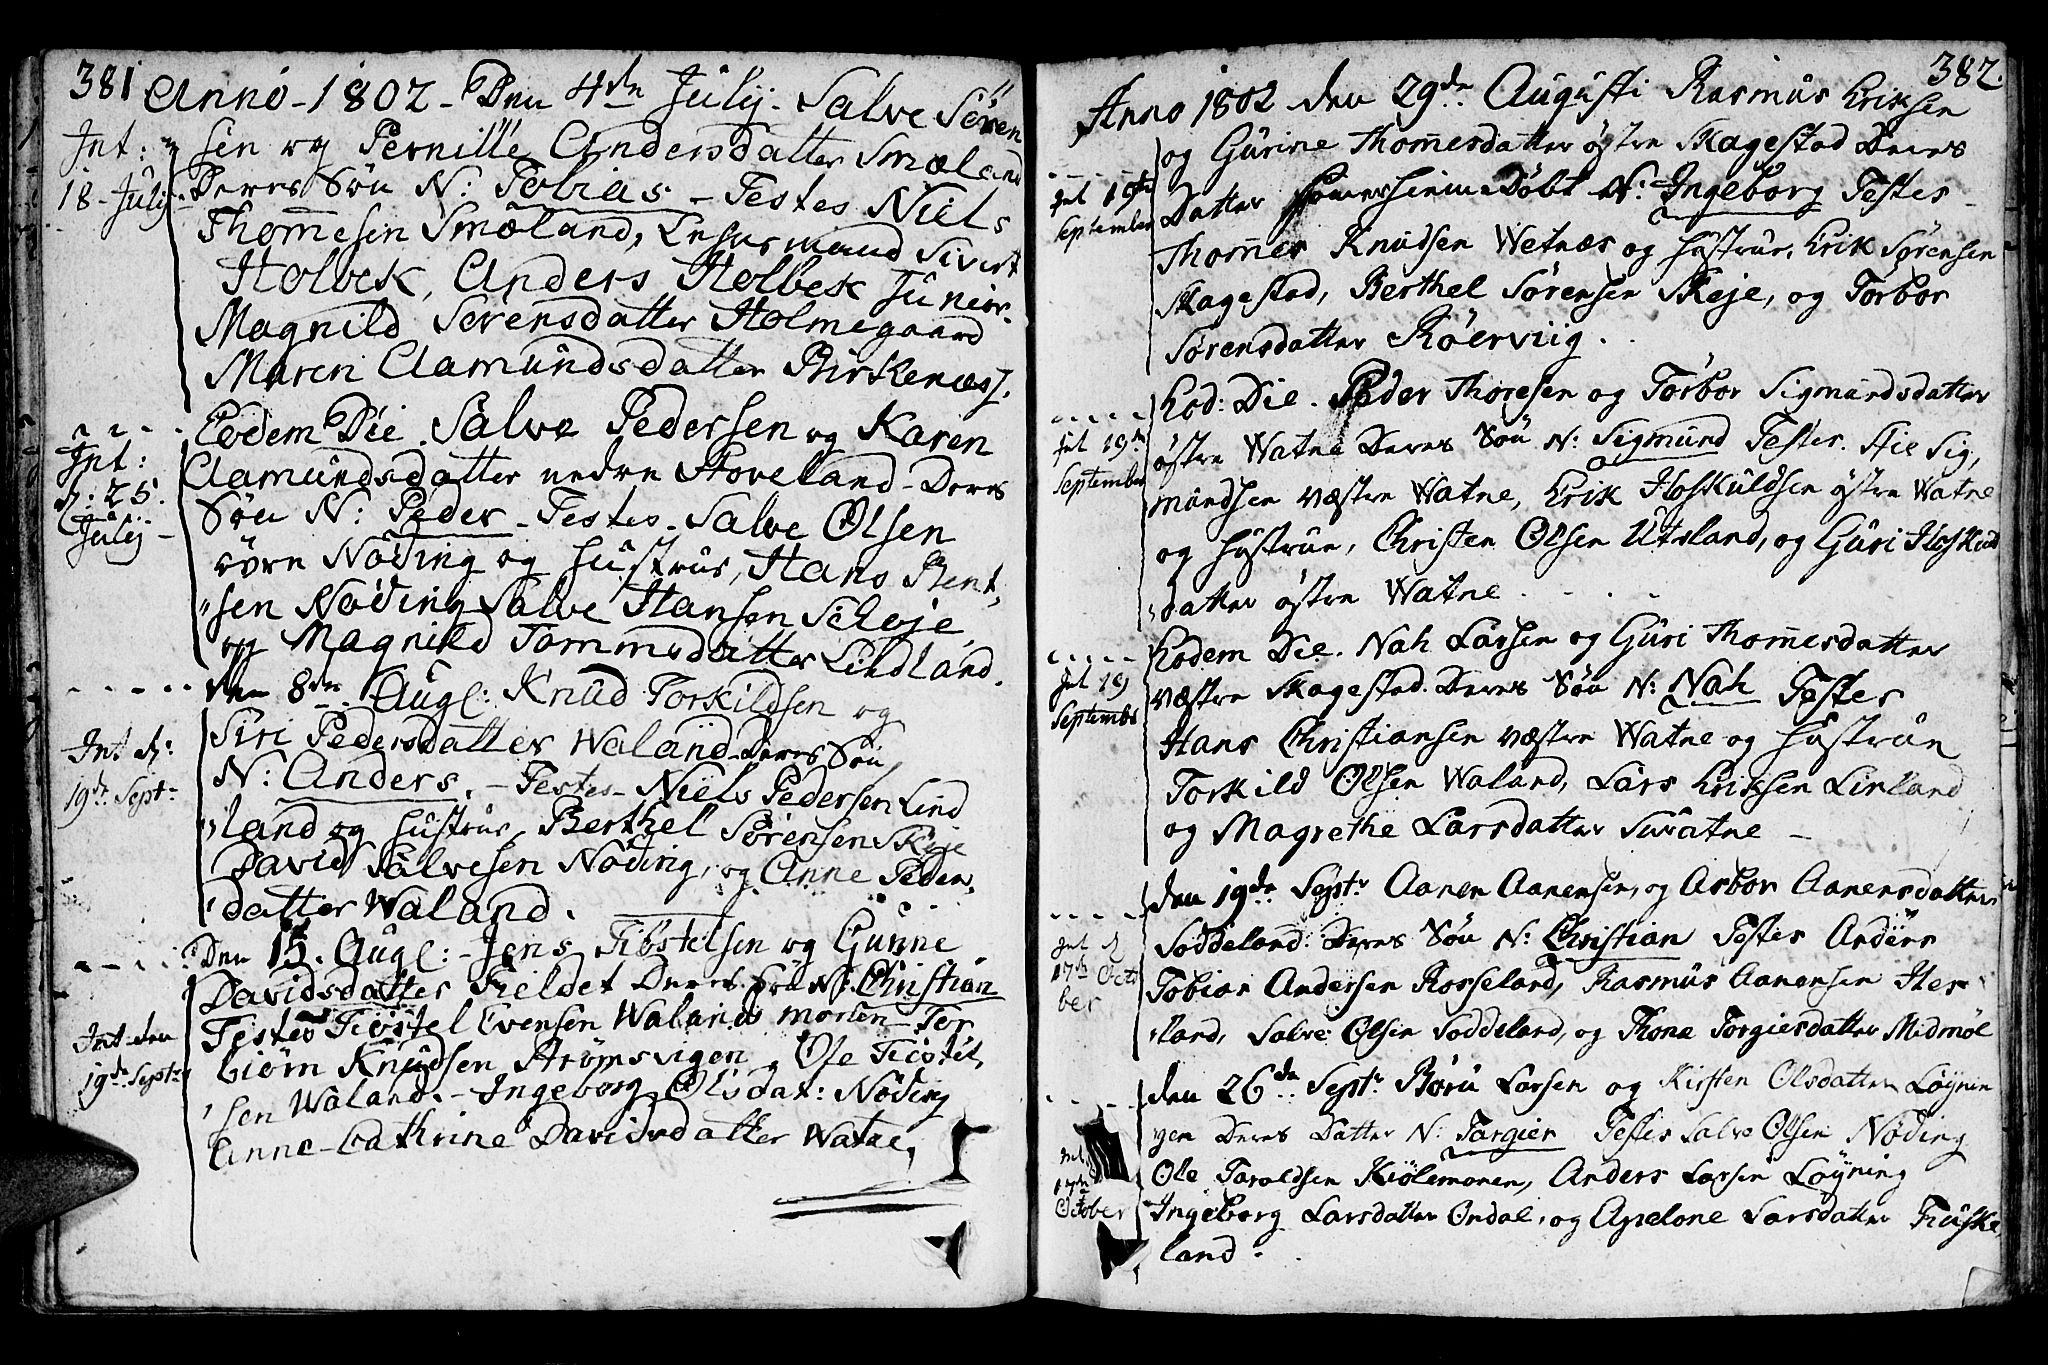 381
Anno - 1802 - Den 4de Julij - Salve Sören
sen og Pernille Andersdatter Smæland
Deres Sön N: Tobias - Testes Niels
Thomesen Smæland, Lensmand Sivert
Holbek, Anders Holbek Junior.
Magnild Sørensdatter Holmegaard
Maren Aamundsdatter Birkenæs.
Int:
18 - Julij
Eodem Die. Salve Pedersen og Karen
Aamundsdatter nedre Stoveland - Deres
Sön N: Peder - Testes - Salve Olsen
övre Nöding og Hustrue, Hans Bent,
"sen Nöding Salve Hansen Schoje,
og Magnild Tommesdatter Lindland.
Int:
d: 25.
Julij -
den 8de Augl: Knud Torkildsen og
Siri Pedersdatter Waland Deres Sön
N: Anders. - Testes - Niels Pedersen Lind
"land og Hustrue, Berthel Sörensen Skeje
David Salvesen Nöding, og Anne Peders,
"datter Waland.
Int d:
19de Septr
Den 15. Augl: - Jens Tiöstelsen og Gunne
Davidsdatter Fieldet Deres Sön N: Christian
Testes Tiöstel Evensen Waland morten Tor
biörn Knudsen Strømsvigen, Ole Tiöstel,
"sen Waland. - Ingeborg Olsdat: Nöding
Anne - Cathrine Davidsdatter Watne,
Int den
19de Septr
382.
Anno 1802 den 29de Augusti Rasmus Eriksen
og Gurine Thomesdatter östre Skagestad Deres
Datter Hiemedöbt N: Ingeborg Testes -
Thomes Knudsen Wetnæs og Hustrue, Erik Sørensen
Skagestad, Berthel Sørensen Skeje, og Torbor
Sørensdatter Röerviig.
Int 19de
September
Eod: Die. Peder Thoresen og Torbor Sigmundsdatter
östre Watne Deres Sön N: Sigmund Testes. Aie Sig,
mundsen væstre Watne, Erik Hoskuldsen östre Watne
og Hustrue, Christen Olsen Utsland, og Guri Hoskuld
"datter östre Watne
Int 19de
September
Eodem Die. Nah Larsen og Guri Thomesdatter
væstre Skagestad Deres Sön N: Nah Testes
Hans Christiansen væstre Watne og Hustrue
Torkild Olsen Waland, Lars Eriksen Linland
og Magrethe Larsdatter Suratne -
Int 19
Septembr
den 19de Septr Aanen Aanensen, og Asbor Aanensdatter
Soddeland: Deres Sön N: Christian Testes Anders
Tobias Andersen Rosseland, Rasmus Aanensen Her
"land, Salve Olsen Soddeland, og Thone Torgiesdatter Midmöl
Int d
17de Octo
ber
den 26de Septr Börü Larsen og Kirsten Olsdatter Löynin
gen Deres Datter N: Targier Testes Salve Olsen Nöding
Ole Taraldsen Kiölemonen, Anders Larsen Löyning
Ingeborg Larsdatter Ordal, og Apelone Larsdatter Fiuske
land.
Int
17de
October